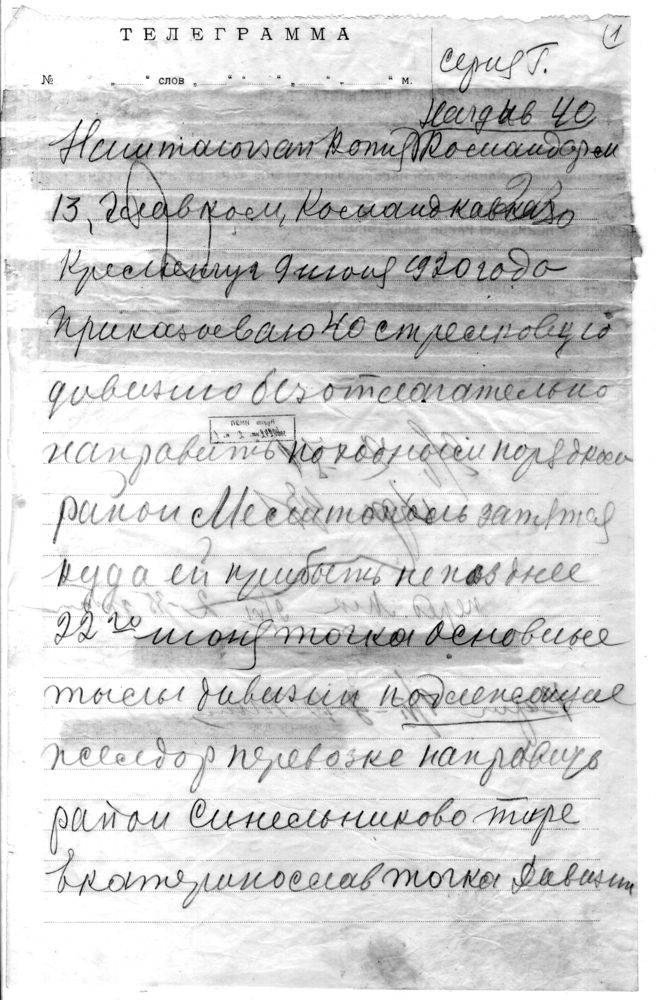 ТЕЛЕГРАММА
1
серия Г.
№ „ “ слов „ “ “ „ “ „ “ м.
Начдив 40
Наштаюгзап Копия Командарм
13, Главком, Командкавказ
Кременчуг 9 июня 1920 года
Приказываю 40 стрелковую
дивизию безотлагательно
направить походным порядком
район Мелитополь запятая
куда ей прибыть не позднее
22го июня точка Основные
тылы дивизии подлежащие
желдор перевозке направить
район Синельниково тире
Екатеринослав точка Дивизии